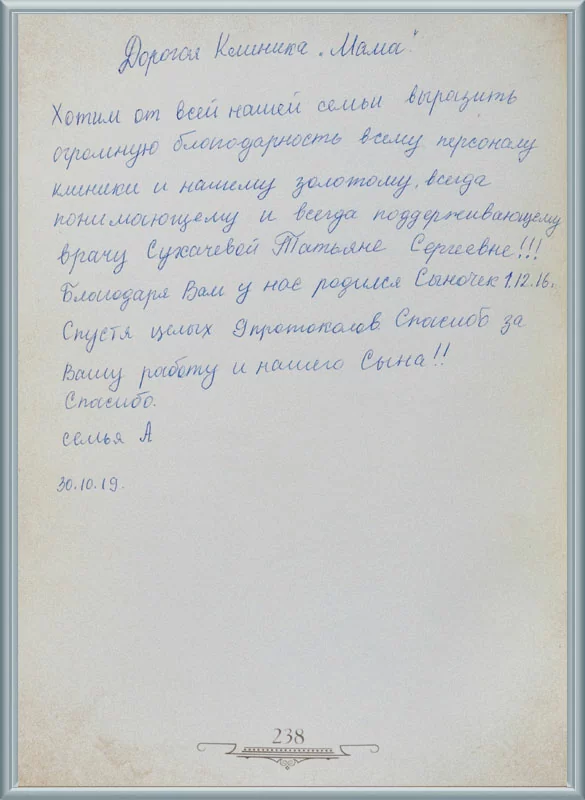 Дорогая Клиника „Мама".
Хотим от всей нашей семьи выразить
огромную благодарность всему персоналу
клиники и нашему золотому, всегда
понимающему и всегда поддерживающему
врачу Сухачевой Татьяне Сергеевне!!!
Благодаря Вам у нас родился Сыночек 1.12.16.
Спустя целых 9 протоколов. Спасибо за
Вашу работу и нашего Сына!!
Спасибо.
семья А
30.10.19.
238